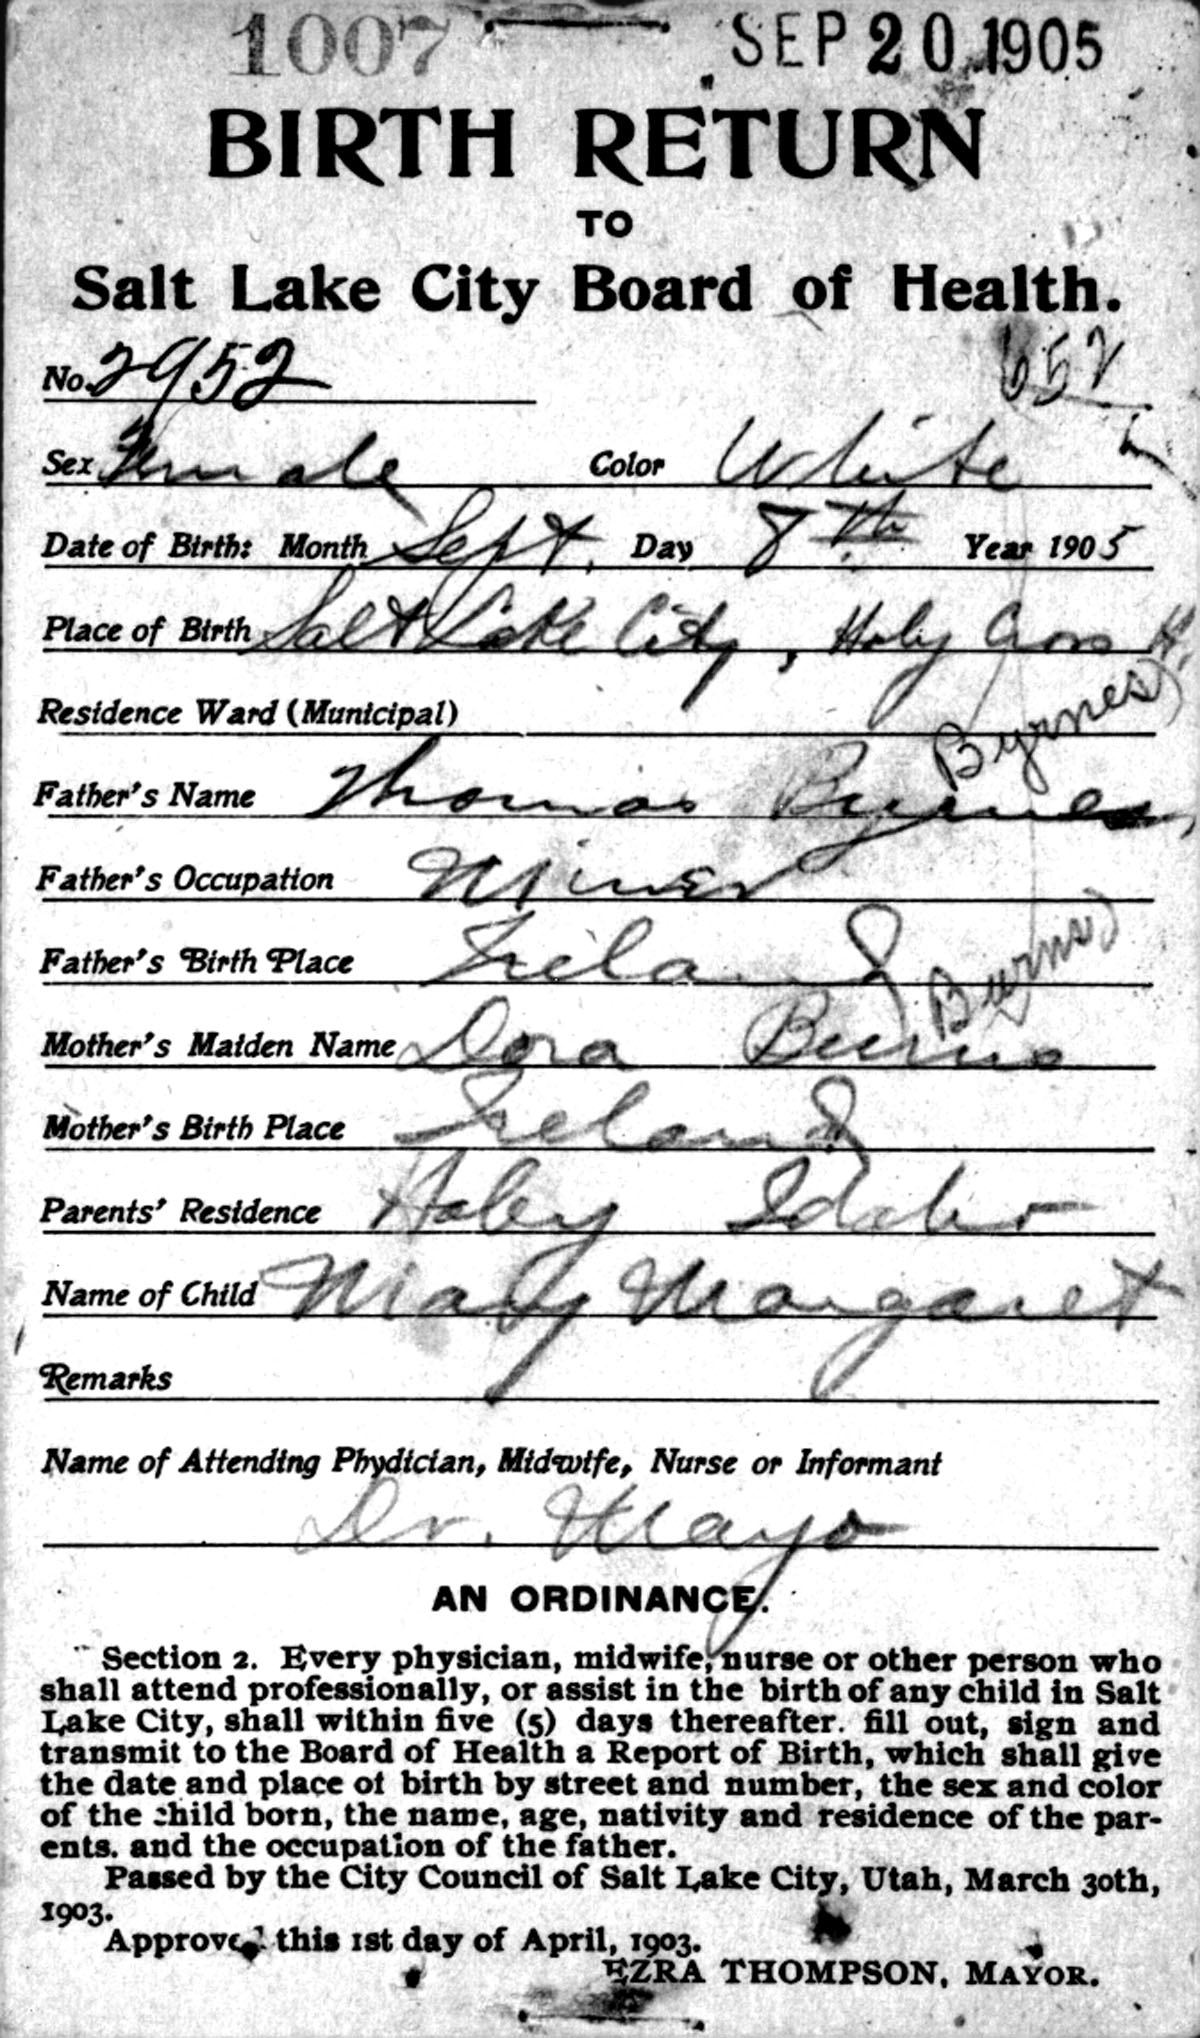 1007 SEP 20 1905
BIRTH RETURN
TO
Salt Lake City Board of Health.
No. 2952 652
Sex Female Color White
Date of Birth: Month Sept. Day 8th Year 1905
Place of Birth Salt Lake City, Holy Cross H.
Residence Ward (Municipal)
Byrnes)
Father's Name Thomas Byrnes
Father's Occupation Miner
Father's Birth Place Ireland
Burns)
Mother's Maiden Name Dora Burns
Mother's Birth Place Ireland
Parents' Residence Idaho
Name of Child Mary Margaret
Remarks
Name of Attending Phydician, Midwife, Nurse or Informant
Dr. Mayo
AN ORDINANCE.
Section 2. Every physician, midwife, nurse or other person who
shall attend professionally, or assist in the birth of any child in Salt
Lake City, shall within five (5) days thereafter. fill out, sign and
transmit to the Board of Health a Report of Birth, which shall give
the date and place of birth by street and number, the sex and color
of the child born, the name, age, nativity and residence of the par-
ents. and the occupation of the father.
Passed by the City Council of Salt Lake City, Utah, March 30th,
1903.
Approved this 1st day of April, 1903.
EZRA THOMPSON, MAYOR.